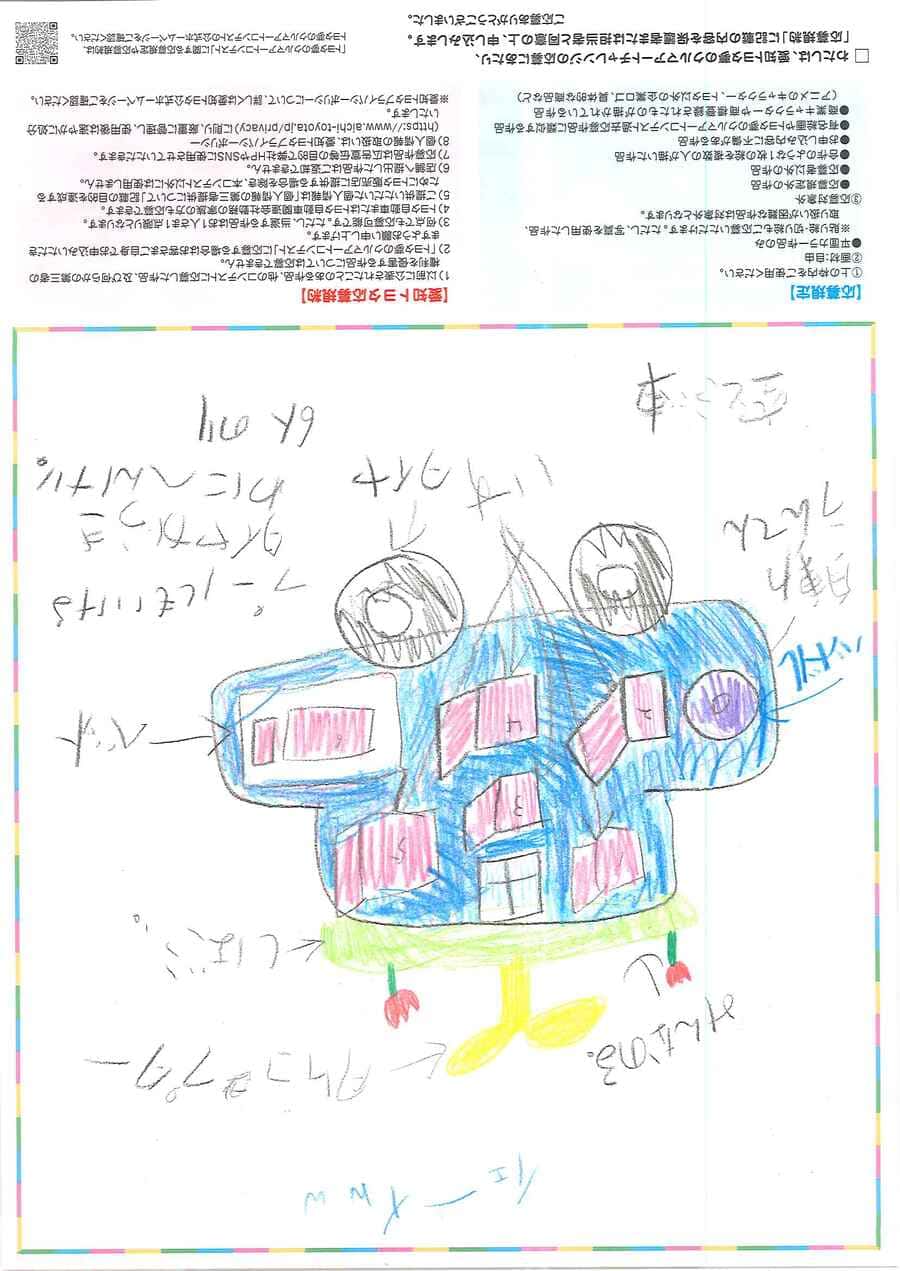 タケコプター
みんなのる。
しばふ。
1
3
5
2
4
6
ベット
プールもいける
タイヤ
6人のり
空とぶ車
【応募規定】
①上の枠の内をご使用ください。
②画材:自由
●平面カラー作品のみ
※貼り絵・切り絵も応募いただけます。ただし、写真を使用した作品、
取扱いが困難な作品は対象外となります。
③応募対象外
●応募規定外の作品
●応募者以外の作品
●合作のような1枚の絵を複数の人が描いた作品
●お申し込み内容に不備がある作品
●有名絵画やトヨタ夢のクルマアートコンテスト過去応募作品に類似する作品
●商業キャラクターや商標登録されたものが描かれている作品
(アニメのキャラクター、トヨタ以外の企業ロゴ、具体的な商品など)
【愛知トヨタ応募規約】
1)以前に公表されたことのある作品、他のコンテストに応募した作品、及び何らかの第三者の
権利を侵害する作品については応募できません。
2)「トヨタ夢のクルマアートコンテスト」に応募する場合はお客さまご自身でお申込みいただき
ますようお願い申し上げます。
3)何点でも応募可能です。ただし、当選する作品はお1人さま1点限りとなります。
4)トヨタ自動車またはトヨタ自動車関連会社勤務の家族の方も応募できます。
5)ご提供いただいた個人情報は「個人情報の第三者提供について」記載の目的を達成する
ためにトヨタ販売店に提供する場合を除き、本コンテスト以外には使用しません。
6)店舗へ提出した作品はご返却できません。
7)応募作品は広告宣伝等の目的で弊社HPやSNSに使用させていただきます。
8)個人情報の取扱いは、愛知トヨタプライバシーポリシー
(https://www.aichi-toyota.jp/privacy)に則り、厳重に管理し、使用後は速やかに処分
いたします。
※愛知トヨタプライバシーポリシーについて、詳しくは愛知トヨタ公式ホームページをご確認ください。
□ わたしは、愛知トヨタ夢のクルマアートチャレンジの応募にあたり、
「応募規約」に記載の内容を保護者または担当者と同意の上、申し込みします。
ご応募ありがとうございました。
「トヨタ夢のクルマアートコンテスト」に関する応募規定や応募規約は、
トヨタ夢のクルマアートコンテストの公式ホームページをご確認ください